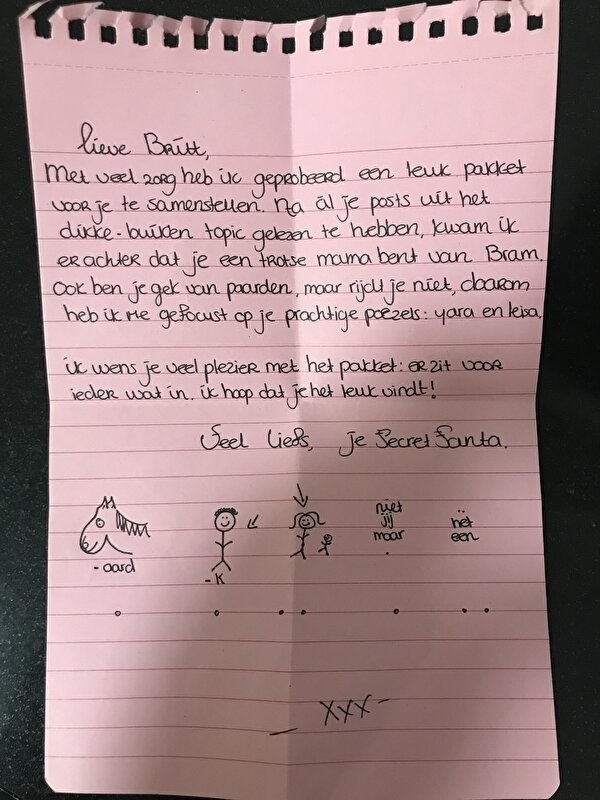 lieve Britt,
Met veel zorg heb ik geprobeerd een leuk pakket
voor je te samenstellen. Na al je posts uit het
dikke-buiken topic gelezen te hebben, kwam ik
erachter dat je een trotse mama bent van Bram.
Ook ben je gek van paarden, maar rijdt je niet, daarom
heb ik me gefocust op je prachtige poezels: yara en leisa.
ik wens je veel plezier met het pakket: er zit voor
ieder wat in. ik hoop dat je het leuk vindt!
Veel liefs, je Secret Santa.
niet
jij
maar
.
het
een
-aard
-k
xxx-